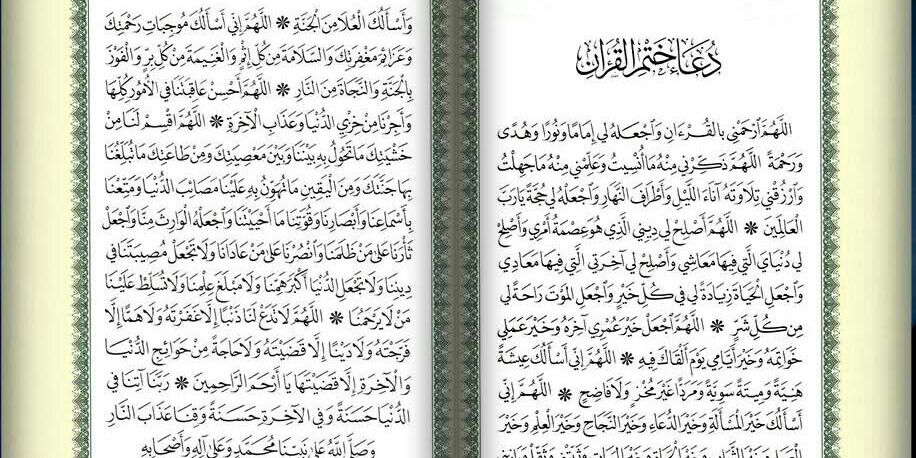 دُعَاءُ خَتْمِ الْقُرْآنِ
اللَّهُمَّ ٱرْحَمْنِي بِالْقُرْءَانِ وَٱجْعَلْهُ لِي إِمَامًا وَنُورًا وَهُدًى
وَرَحْمَةً اللَّهُمَّ ذَكِّرْنِي مِنْهُ مَا نُسِّيتُ وَعَلِّمْنِي مِنْهُ مَا جَهِلْتُ
وَٱرْزُقْنِي تِلَاوَتَهُ آنَاءَ اللَّيْلِ وَأَطْرَافَ النَّهَارِ وَٱجْعَلْهُ لِي حُجَّةً يَارَبَّ
الْعَالَمِينَ * اللَّهُمَّ أَصْلِحْ لِي دِينِي الَّذِي هُوَ عِصْمَةُ أَمْرِي وَأَصْلِحْ
لِي دُنْيَايَ الَّتِي فِيهَا مَعَاشِي وَأَصْلِحْ لِي آخِرَتِي الَّتِي فِيهَا مَعَادِي
وَٱجْعَلِ الْحَيَاةَ زِيَادَةً لِي فِي كُلِّ خَيْرٍ وَٱجْعَلِ الْمَوْتَ رَاحَةً لِي
مِن كُلِّ شَرٍّ * اللَّهُمَّ ٱجْعَلْ خَيْرَ عُمْرِي آخِرَهُ وَخَيْرَ عَمَلِي
خَوَاتِمَهُ وَخَيْرَ أَيَّامِي يَوْمَ أَلْقَاكَ فِيهِ * اللَّهُمَّ إِنِّي أَسْأَلُكَ عِيشَةً
هَنِيَّةً وَمِيتَةً سَوِيَّةً وَمَرَدًّا غَيْرَ مُخْزٍ وَلَا فَاضِحٍ * اللَّهُمَّ إِنِّي
أَسْأَلُكَ خَيْرَ الْمَسْأَلَةِ وَخَيْرَ الدُّعَاءِ وَخَيْرَ النَّجَاحِ وَخَيْرَ الْعِلْمِ وَخَيْرَ
وَأَسْأَلُكَ الْعُلَا مِنَ الْجَنَّةِ * اللَّهُمَّ إِنِّي أَسْأَلُكَ مُوجِبَاتِ رَحْمَتِكَ
وَعَزَائِمَ مَغْفِرَتِكَ وَالسَّلَامَةَ مِن كُلِّ إِثْمٍ وَالْغَنِيمَةَ مِن كُلِّ بِرٍّ وَالْفَوْزَ
بِالْجَنَّةِ وَالنَّجَاةَ مِنَ النَّارِ * اللَّهُمَّ أَحْسِنْ عَاقِبَتَنَا فِي الْأُمُورِ كُلِّهَا
وَأَجِرْنَا مِنْ خِزْيِ الدُّنْيَا وَعَذَابِ الْآخِرَةِ * اللَّهُمَّ ٱقْسِمْ لَنَا مِنْ
خَشْيَتِكَ مَا تَحُولُ بِهِ بَيْنَنَا وَبَيْنَ مَعْصِيَتِكَ وَمِنْ طَاعَتِكَ مَا تُبَلِّغُنَا
بِهَا جَنَّتَكَ وَمِنَ الْيَقِينِ مَا تُهَوِّنُ بِهِ عَلَيْنَا مَصَائِبَ الدُّنْيَا وَمَتِّعْنَا
بِأَسْمَاعِنَا وَأَبْصَارِنَا وَقُوَّتِنَا مَا أَحْيَيْتَنَا وَٱجْعَلْهُ الْوَارِثَ مِنَّا وَٱجْعَلْ
ثَأْرَنَا عَلَى مَنْ ظَلَمَنَا وَٱنْصُرْنَا عَلَى مَنْ عَادَانَا وَلَا تَجْعَلْ مُصِيبَتَنَا فِي
دِينِنَا وَلَا تَجْعَلِ الدُّنْيَا أَكْبَرَ هَمِّنَا وَلَا مَبْلَغَ عِلْمِنَا وَلَا تُسَلِّطْ عَلَيْنَا
مَنْ لَا يَرْحَمُنَا * اللَّهُمَّ لَا تَدَعْ لَنَا ذَنْبًا إِلَّا غَفَرْتَهُ وَلَا هَمًّا إِلَّا
فَرَّجْتَهُ وَلَا دَيْنًا إِلَّا قَضَيْتَهُ وَلَا حَاجَةً مِنْ حَوَائِجِ الدُّنْيَا
وَالْآخِرَةِ إِلَّا قَضَيْتَهَا يَا أَرْحَمَ الرَّاحِمِينَ * رَبَّنَا آتِنَا فِي
الدُّنْيَا حَسَنَةً وَفِي الْآخِرَةِ حَسَنَةً وَقِنَا عَذَابَ النَّارِ
وَصَلَّى اللَّهُ عَلَى نَبِيِّنَا مُحَمَّدٍ وَعَلَى آلِهِ وَأَصْحَابِهِ